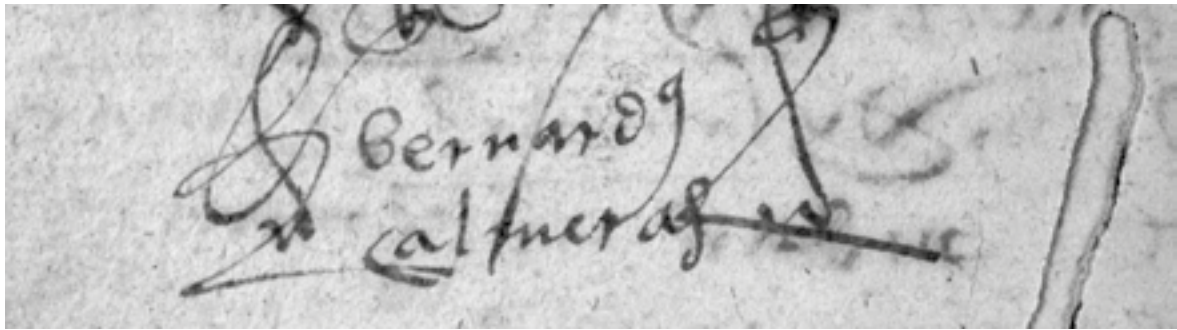 bernardꝰ
calmeras